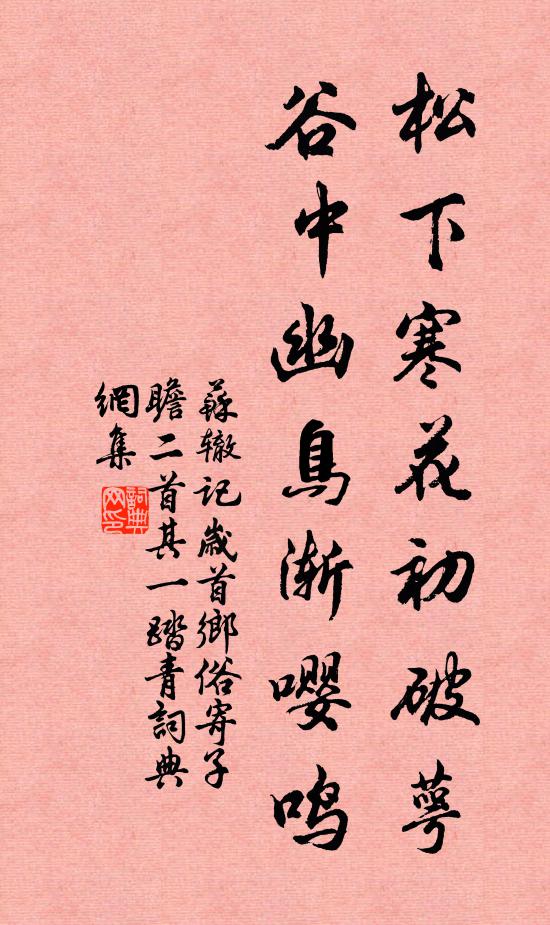 松下寒花初破萼
谷中幽鳥漸嚶鳴
蘇辙记歲首鄉俗寄子
瞻二首其一踏青詞典
網集
詞典
网印